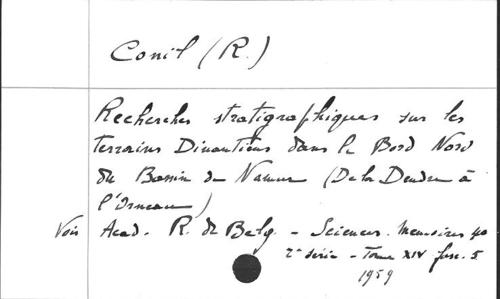 Conil (R.)
Recherches stratigraphiques sur les
terrains Dinantiens dans le Bord Nord
du Bassin de Namur (De la Dendre à
l'Orneau)
Voir Acad. R. de Belg. - Sciences. Memoires 4o
2e série - Tome XIV fasc. 5
1959